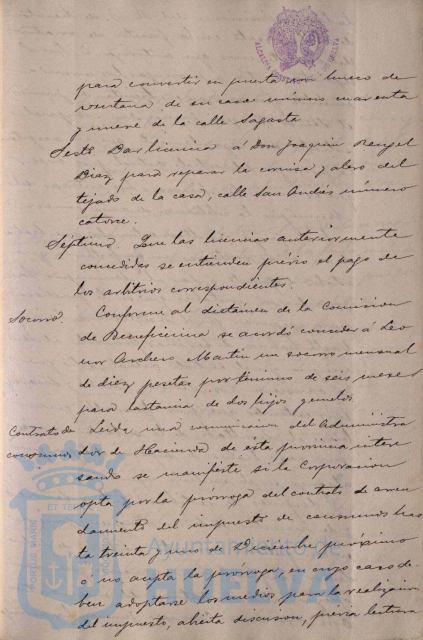 para convertir en puerta un hueco de
ventana de su casa número cuarenta
y nueve de la calle Sagasta
Sesto. Dar licencia á Don Joaquin Rengel
Diaz para reparar la cornisa y alero del
tejado de la casa, calle San Andrés número
catorce.
Séptimo. Que las licencias anteriormente
concedidas se entienden prévio el pago de
los arbitrios correspondientes.
Socorro.
Conforme al dictámen de la Comision
de Beneficencia se acordó conceder á Leo
nor Archero Martin un socorro mensual
de diez pesetas por término de seis meses
para lactancia de dos hijos gemelos.
Contrato de
consumos
Leida una comunicacion del Administra
dor de Hacienda de esta provincia intere
sando se manifieste si la Corporacion
opta por la próroga del contrato de arren
damiento del impuesto de consumos has
ta treinta y uno de Diciembre próximo
ó no acepta la próroga, en cuyo caso de-
ben adoptarse los medios para la realizacion
del impuesto, abierta discusion, prévia lectura
Ayuntamiento de
HUELVA
PORTUS MARIS ET TERRAE